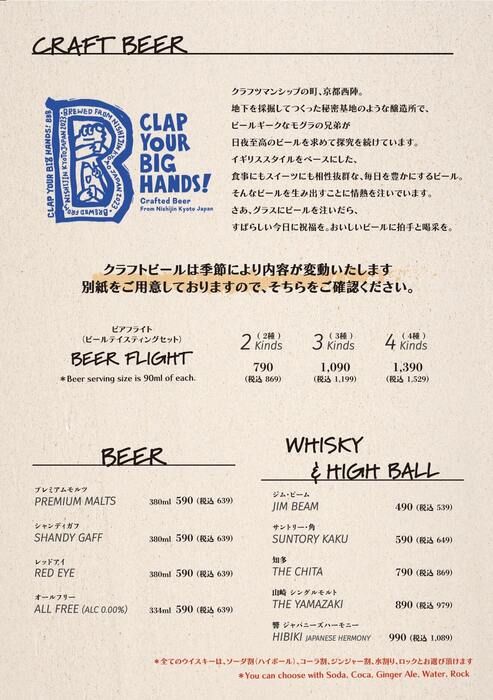 CRAFT BEER
BREWED FROM NISHIJIN KYOTO JAPAN 2023
CLAP YOUR BIG HANDS! BBB
CLAP
YOUR
BIG
HANDS!
Crafted Beer
From Nishijin Kyoto Japan
クラフツマンシップの町、京都西陣。
地下を採掘してつくった秘密基地のような醸造所で、
ビールギークなモグラの兄弟が
日夜至高のビールを求めて探究を続けています。
イギリススタイルをベースにした、
食事にもスイーツにも相性抜群な、毎日を豊かにするビール。
そんなビールを生み出すことに情熱を注いでいます。
さあ、グラスにビールを注いだら、
すばらしい今日に祝福を。おいしいビールに拍手と喝采を。
クラフトビールは季節により内容が変動いたします
別紙をご用意しておりますので、そちらをご確認ください。
ビアフライト
(ビールテイスティングセット)
BEER FLIGHT
*Beer serving size is 90ml of each.
2(2種)Kinds
790
(税込 869)
3(3種)Kinds
1,090
(税込 1,199)
4(4種)Kinds
1,390
(税込 1,529)
BEER
プレミアムモルツ
PREMIUM MALTS 380ml 590 (税込 639)
シャンディガフ
SHANDY GAFF 380ml 590 (税込 639)
レッドアイ
RED EYE 380ml 590 (税込 639)
オールフリー
ALL FREE (ALC 0.00%) 334ml 590 (税込 639)
WHISKY
& HIGH BALL
ジム・ビーム
JIM BEAM 490 (税込 539)
サントリー・角
SUNTORY KAKU 590 (税込 649)
知多
THE CHITA 790 (税込 869)
山崎 シングルモルト
THE YAMAZAKI 890 (税込 979)
響 ジャパニーズハーモニー
HIBIKI JAPANESE HERMONY 990 (税込 1,089)
*全てのウイスキーは、ソーダ割(ハイボール)、コーラ割、ジンジャー割、水割り、ロックとお選び頂けます
*You can choose with Soda, Coca, Ginger Ale, Water, Rock